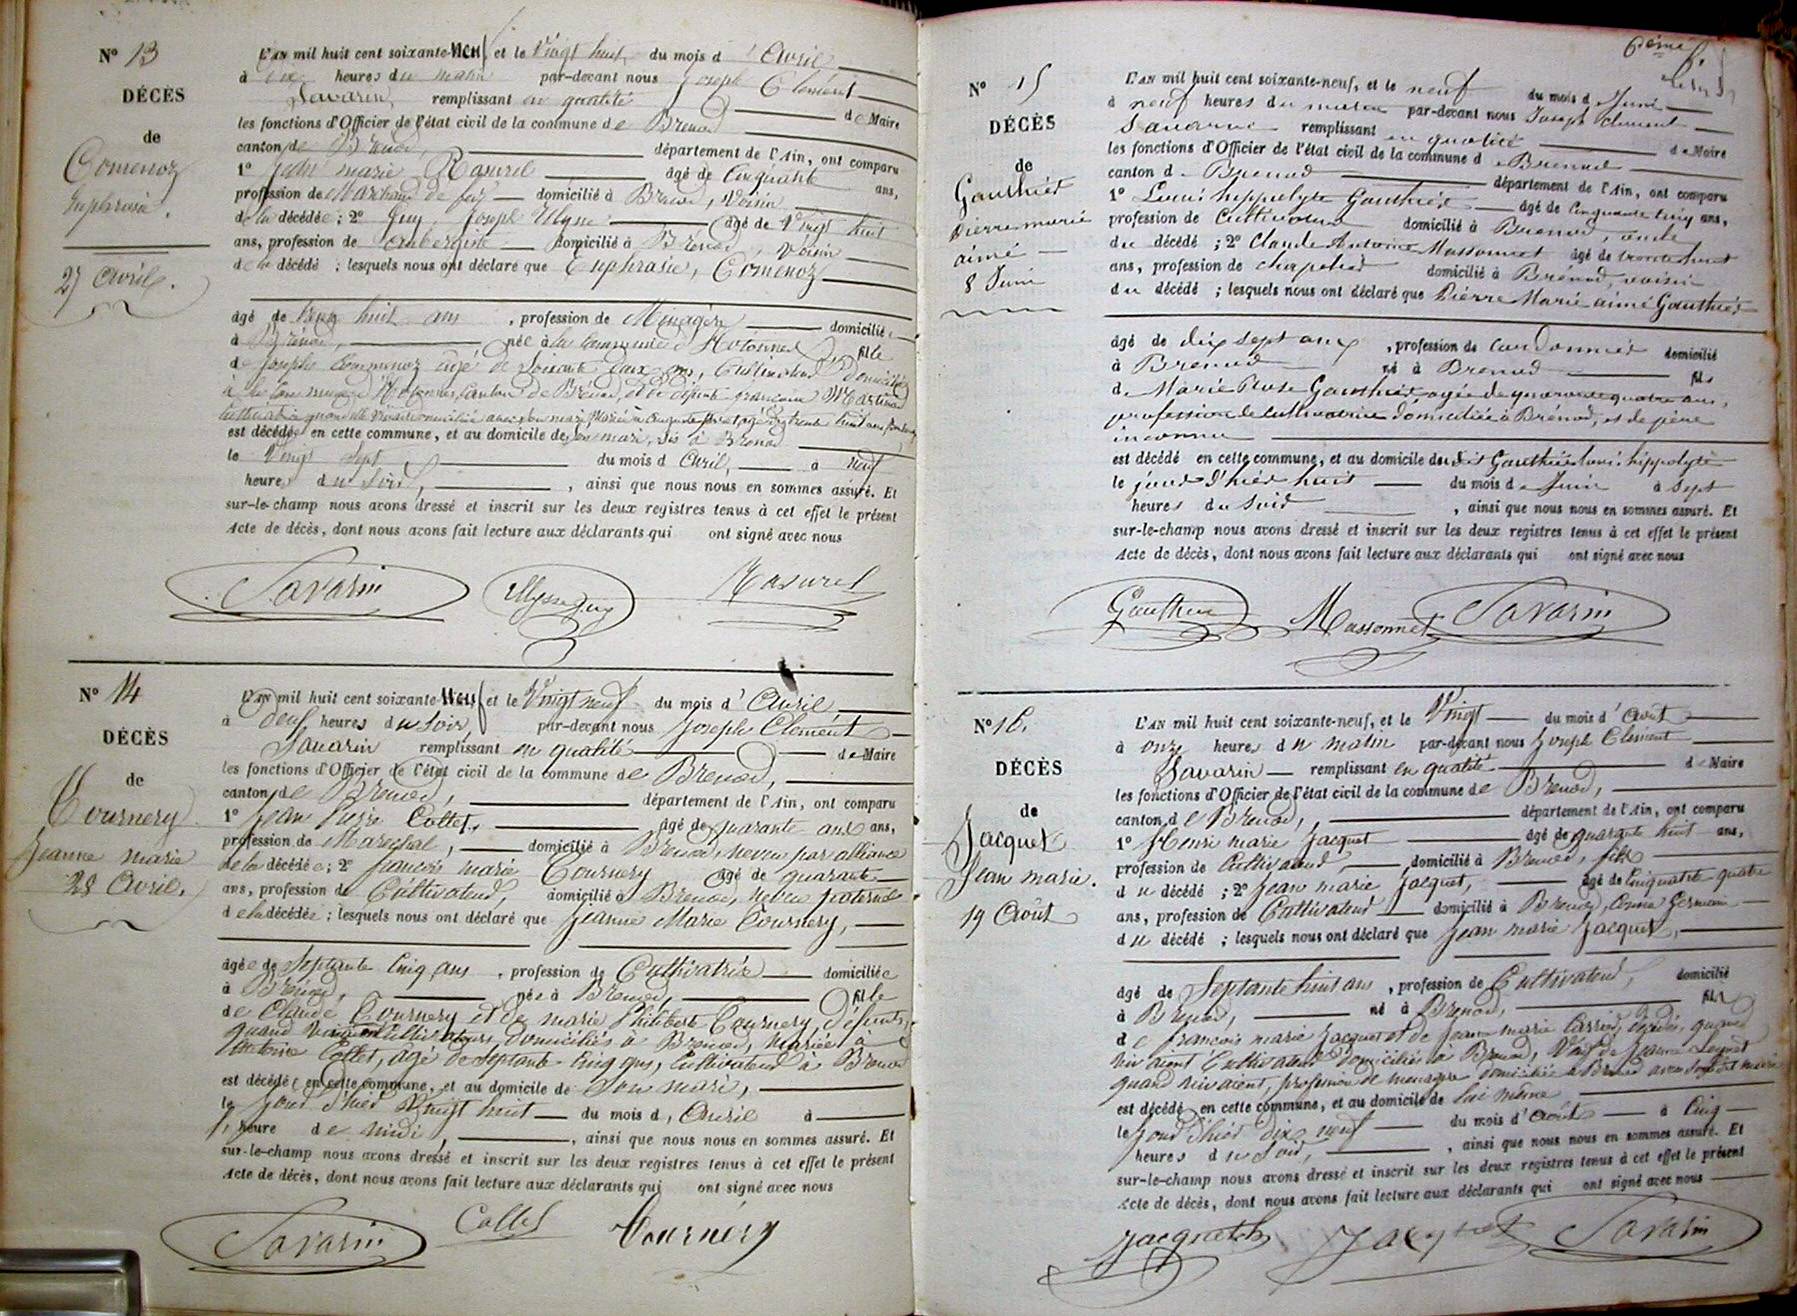 N° 13
DÉCÈS
de
Comenoz
Euphrasie.
27 Avril.
L'AN mil huit cent soixante-neuf et le Vingt huit du mois d'Avril
à dix heures du matin par-devant nous Joseph Clément
Savarin remplissant en qualité de Maire
les fonctions d'Officier de l'état civil de la commune de Brenod
canton de Brénod, département de l'Ain, ont comparu
1° Jean marie Rasurel agé de Cinquante ans,
profession de Marchand de domicilié à Brénod, Voisin
de la décédée; 2° Guy Joseph Ulysse agé de Vingt huit
ans, profession de aubergiste domicilié à Brénod, voisin
de la décédé; lesquels nous ont déclaré que Euphrasie, Comenoz
âgé de huit ans, profession de Ménagère domicilié
à Brénod, née à la commune d'Hotonnes fille
de Joseph Commenoz agé de Soixante deux ans, Cultivateur domicilié
à la commune d'Hotonnes, canton de Brénod, et de défunte françoise
est décédée en cette commune, et au domicile de son mari, sis à Brénod
le Vingt sept du mois d'Avril, à neuf
heures du Soir, ainsi que nous nous en sommes assuré. Et
sur-le-champ nous avons dressé et inscrit sur les deux registres tenus à cet effet le présent
Acte de décès, dont nous avons fait lecture aux déclarants qui ont signé avec nous
Savarin Ulysse Guy Rasurel
N° 14
DÉCÈS
de
Tournery
Jeanne marie
28 Avril.
L'AN mil huit cent soixante-neuf et le Vingt neuf du mois d'Avril
à deux heures du soir, par-devant nous Joseph Clément
Savarin remplissant en qualité de Maire
les fonctions d'Officier de l'état civil de la commune de Brenod,
canton de Brenod, département de l'Ain, ont comparu
1° Jean Pierre Collet, âgé de quarante ans,
profession de Maréchal, domicilié à Brénod, neveu par alliance
de la décédée; 2° françois marie Tournery agé de quarante
ans, profession de Cultivateur, domicilié à Brenod, neveu paternel
de la décédée; lesquels nous ont déclaré que Jeanne Marie Tournery,
âgée de Septante Cinq ans, profession de Cultivatrice domiciliée
à Brénod, née à Brenod, fille
de Claude Tournery et de marie Philiberte Tournery, défunts,
quand vivaient Cultivateurs, Domiciliés à Brenod, Mariée à
Antoine Collet, agé de Septante Cinq ans, Cultivateur à Brenod
est décédée en cette commune, et au domicile de Son mari,
le jour d'hier Vingt huit du mois d'Avril à
heure de midi, ainsi que nous nous en sommes assuré. Et
sur-le-champ nous avons dressé et inscrit sur les deux registres tenus à cet effet le présent
Acte de décès, dont nous avons fait lecture aux déclarants qui ont signé avec nous
Savarin Collet Tournéry
6ème f.
N° 15
DÉCÈS
de
Gauthier
Pierre marie
aimé
8 Juin
L'AN mil huit cent soixante-neuf, et le neuf du mois de Juin
à neuf heures du matin par-devant nous Joseph Clément
Savarin remplissant en qualité de Maire
les fonctions d'Officier de l'état civil de la commune de Brenod
canton de Brenod département de l'Ain, ont comparu
1° Louis hippolyte Gauthier agé de Cinquante ans,
profession de Cultivateur domicilié à Brenod, oncle
du décédé; 2° Claude Antoine Massonnet agé de trente huit
ans, profession de chapelier domicilié à Brénod, voisin
du décédé; lesquels nous ont déclaré que Pierre Marie aimé Gauthier
âgé de dix sept ans, profession de Cordonnier domicilié
à Brenod né à Brenod fils
de Marie Rose Gauthier, agée de quarante quatre ans,
profession de cultivatrice domiciliée à Brénod, et de père
inconnu
est décédé en cette commune, et au domicile dudit Gauthier Louis hippolyte
le jour d'hier huit du mois de Juin à sept
heures du Soir, ainsi que nous nous en sommes assuré. Et
sur-le-champ nous avons dressé et inscrit sur les deux registres tenus à cet effet le présent
Acte de décès, dont nous avons fait lecture aux déclarants qui ont signé avec nous
Gauthier Massonnet Savarin
N° 16.
DÉCÈS
de
Jacquet
Jean marie.
19 Août
L'AN mil huit cent soixante-neuf, et le Vingt du mois d'Août
à onze heures du matin par-devant nous Joseph Clément
Savarin remplissant en qualité de Maire
les fonctions d'Officier de l'état civil de la commune de Brenod,
canton de Brénod, département de l'Ain, ont comparu
1° Henri marie Jacquet âgé de quarante huit ans,
profession de Cultivateur, domicilié à Brenod, fils
du décédé; 2° Jean marie Jacquet, agé de Cinquante quatre
ans, profession de Cultivateur domicilié à Brenod, Cousin Germain
du décédé; lesquels nous ont déclaré que Jean marie Jacquet,
âgé de Septante huit ans, profession de Cultivateur, domicilié
à Brenod, né à Brenod, fils
de françois marie Jacquet et de Jeanne marie Carrier, décédés, quand
vivaient Cultivateurs domiciliés à Brenod, Veuf de Jeanne
quand vivait, profession de ménagère domiciliée à Brenod avec son dit mari
est décédé en cette commune, et au domicile de lui même
le jour d'hier dix neuf du mois d'août à Cinq
heures du Soir, ainsi que nous nous en sommes assuré. Et
sur-le-champ nous avons dressé et inscrit sur les deux registres tenus à cet effet le présent
Acte de décès, dont nous avons fait lecture aux déclarants qui ont signé avec nous
Jacquet Jacquet Savarin